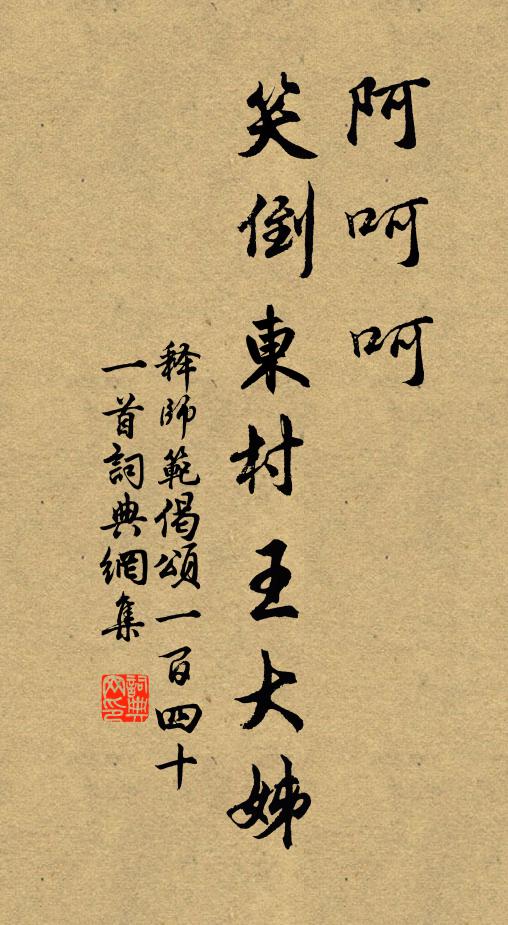 阿呵呵
笑倒東村王大姊
释師範偈頌一百四十
一首詞典網集
詞典
网印